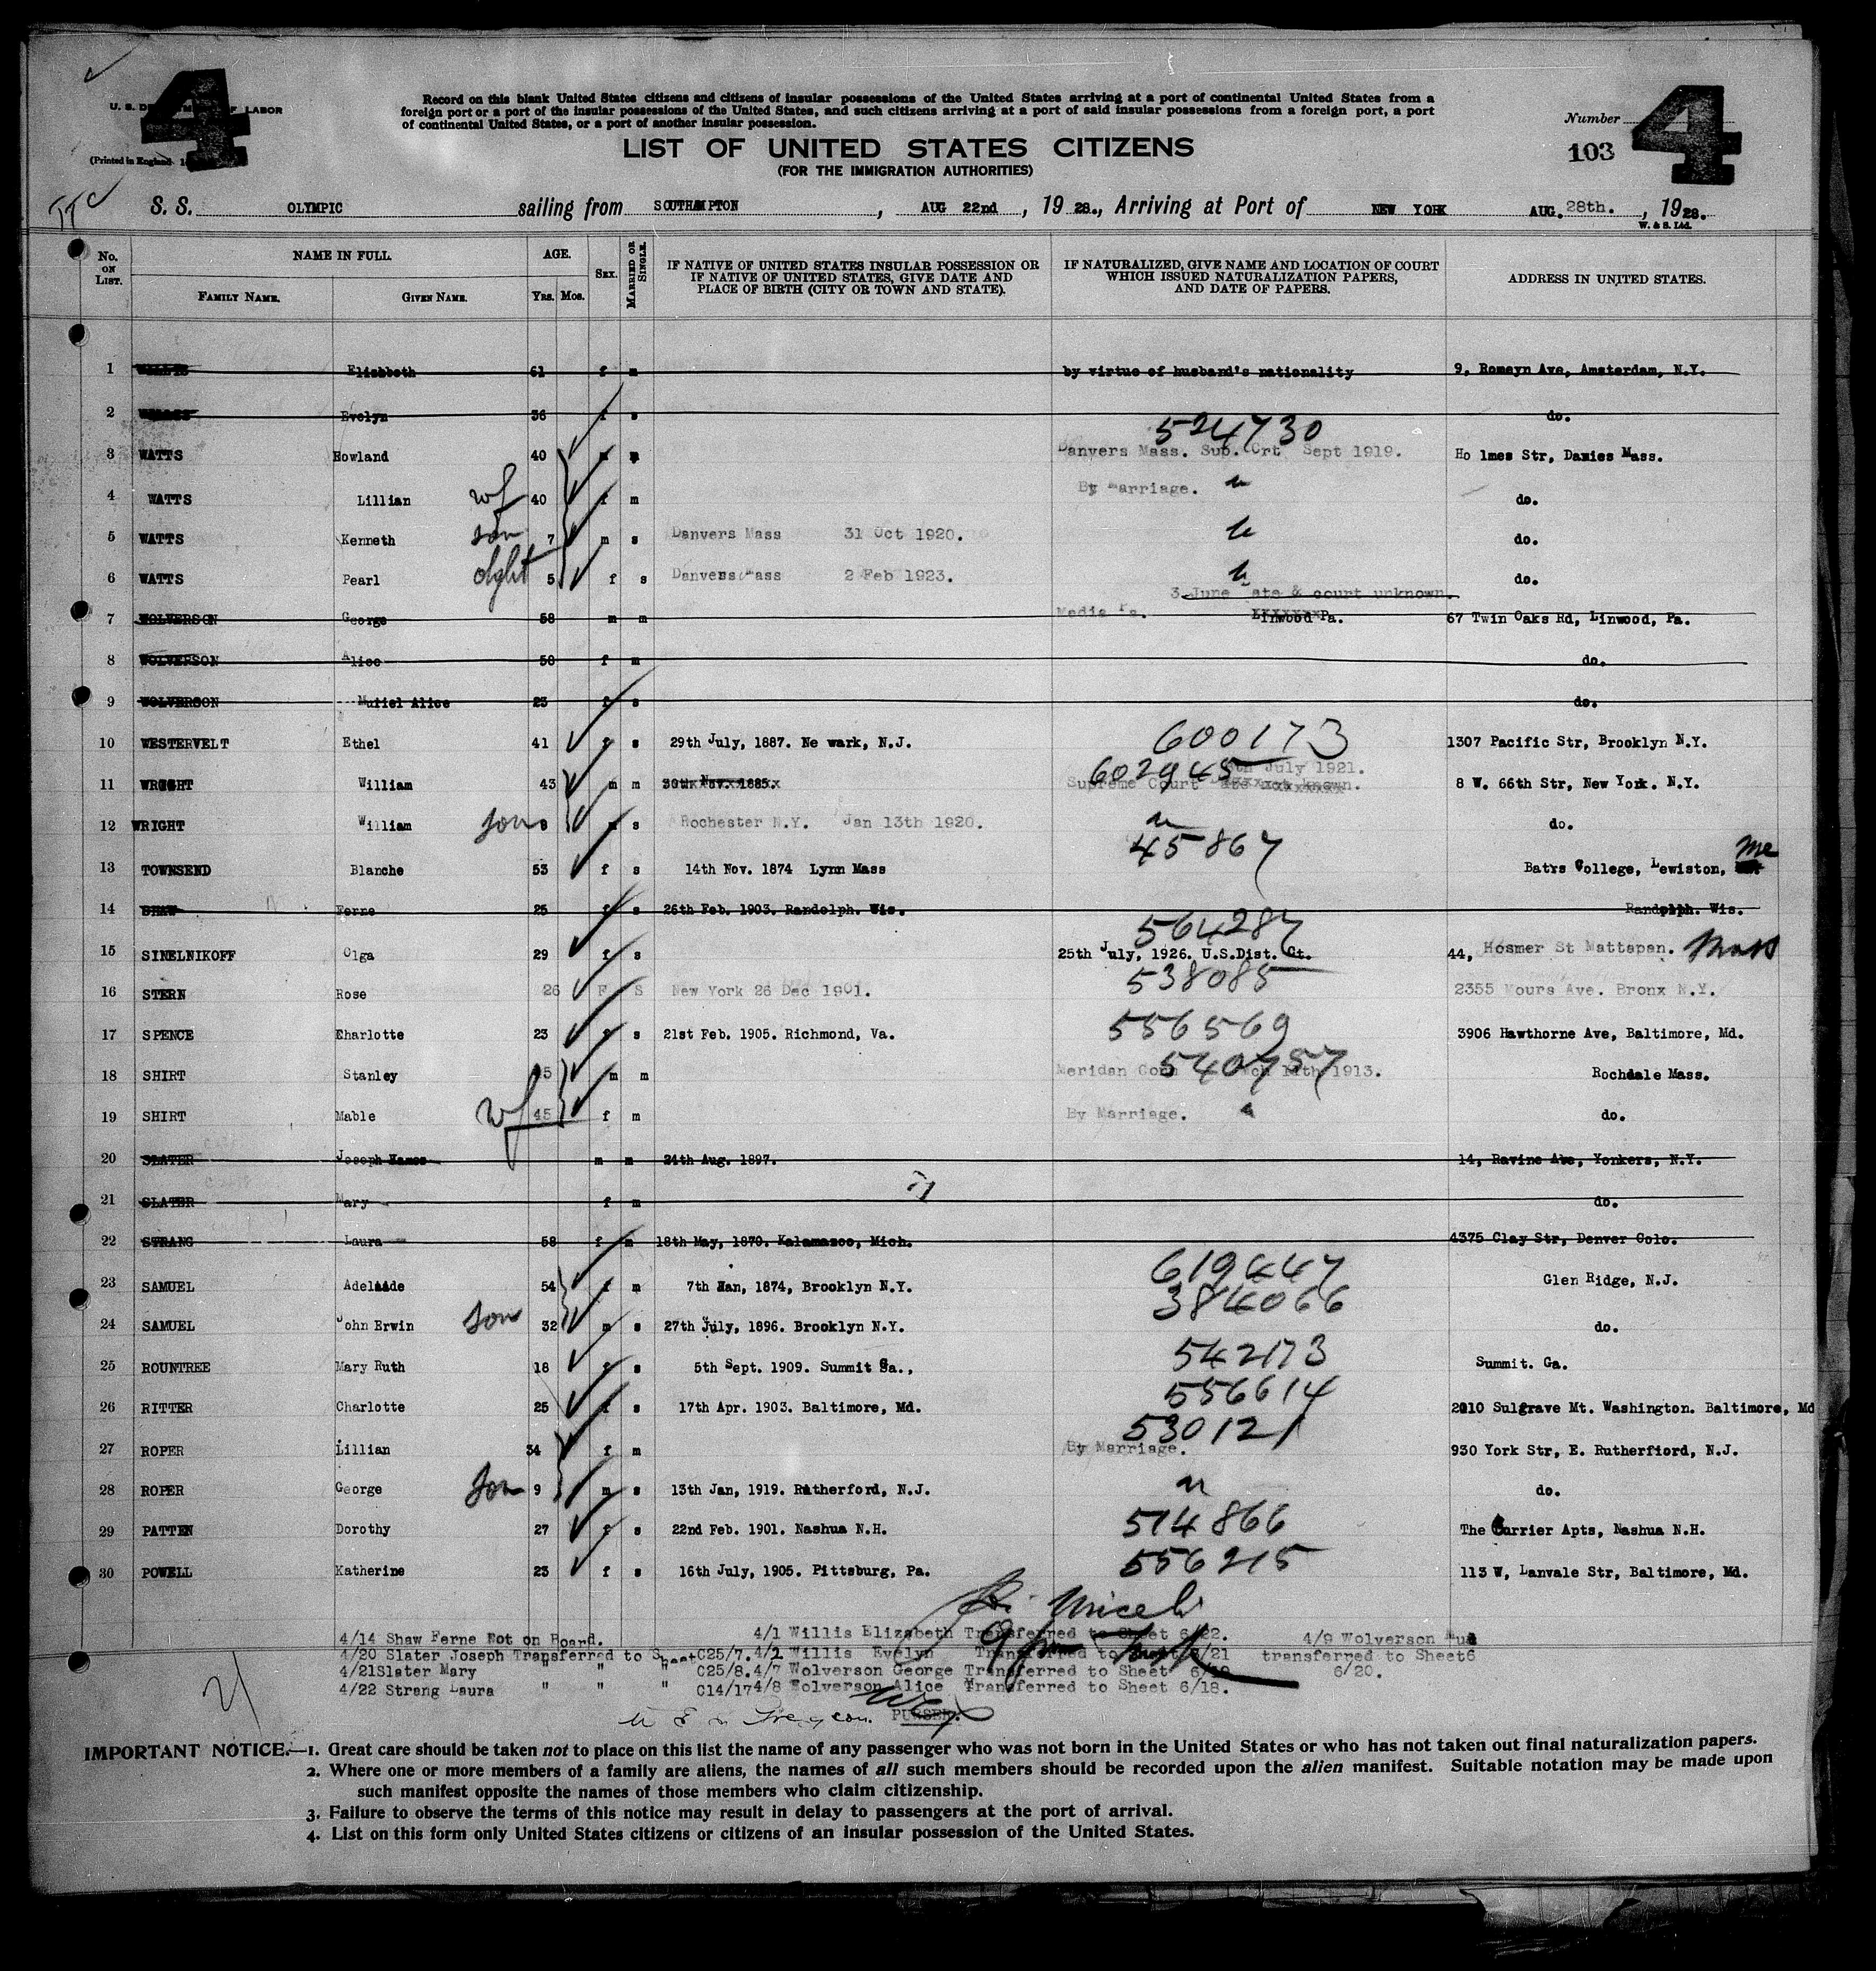 4
U. S. DEPARTMENT OF LABOR
(Printed in England.
Record on this blank United States citizens and citizens of insular possessions of the United States arriving at a port of continental United States from a
foreign port or a port of the insular possessions of the United States, and such citizens arriving at a port of said insular possessions from a foreign port, a port
of continental United States, or a port of another insular possession.
Number
103
4
LIST OF UNITED STATES CITIZENS
(FOR THE IMMIGRATION AUTHORITIES)
S. S. OLYMPIC sailing from SOUTHAMPTON, AUG 22nd, 1928., Arriving at Port of NEW YORK AUG. 28th., 1928.
W. & S. Ltd.
No. ON LIST. NAME IN FULL. FAMILY NAME. GIVEN NAME. AGE. YRS. MOS. SEX. MARRIED OR SINGLE. IF NATIVE OF UNITED STATES INSULAR POSSESSION OR IF NATIVE OF UNITED STATES, GIVE DATE AND PLACE OF BIRTH (CITY OR TOWN AND STATE). IF NATURALIZED, GIVE NAME AND LOCATION OF COURT WHICH ISSUED NATURALIZATION PAPERS, AND DATE OF PAPERS. ADDRESS IN UNITED STATES.
1 WILLIS Elizbbeth 61 f m by virtue of husband's nationality 9, Romeyn Ave, Amsterdam, N.Y.
2 WILLIS Evelyn 36 f s do.
524730
3 WATTS Rowland 40 m m Danvers Mass. Sup. Crt Sept 1919. Ho lmes Str, Danies Mass.
4 WATTS Lillian wf 40 f m By Marriage. " do.
5 WATTS Kenneth son 7 m s Danvers Mass 31 Oct 1920. " do.
6 WATTS Pearl dght 5 f s Danvers Mass 2 Feb 1923. " do.
3 June ate & court unknown.
7 WOLVERSON George 58 m m Media Pa. Linwood Pa. 67 Twin Oaks Rd, Linwood, Pa.
8 WOLVERSON Alice 50 f m do.
9 WOLVERSON Muriel Alice 23 f s do.
10 WESTERVELT Ethel 41 f s 29th July, 1887. Ne wark, N.J. 600173 1307 Pacific Str, Brooklyn N.Y.
602945 July 1921.
11 WRIGHT William 43 m m 30th Nov. 1885. Supreme Court 8 W. 66th Str, New York. N.Y.
12 WRIGHT William son 8 m s Rochester N.Y. Jan 13th 1920. " do.
13 TOWNSEND Blanche 53 f s 14th Nov. 1874 Lynn Mass 45867 Batrs College, Lewiston, Me
14 SHAW Ferne 25 f s 26th Feb. 1903. Randolph. Wis. Randolph. Wis.
564287
15 SINELNIKOFF Olga 29 f s 25th July, 1926. U.S.Dist. Ct. 44, Hosmer St Mattapan. Mass
16 STERN Rose 26 F S New York 26 Dec 1901. 538085 2355 Mours Ave. Bronx N.Y.
17 SPENCE Eharlotte 23 f s 21st Feb. 1905. Richmond, Va. 556569 3906 Hawthorne Ave, Baltimore, Md.
18 SHIRT Stanley 45 m m Meriden Conn 540757 1913. Rochdale Mass.
19 SHIRT Mable wf 45 f m By Marriage. " do.
20 SLATER Joseph James m m 24th Aug. 1897. 14, Ravine Ave, Yonkers, N.Y.
21 SLATER Mary f m do.
22 STRANG Laura 58 f m 18th May, 1870. Kalamazoo, Mich. 4375 Clay Str, Denver Colo.
23 SAMUEL Adelaide 54 f m 7th Jan, 1874, Brooklyn N.Y. 619447 Glen Ridge, N.J.
24 SAMUEL John Erwin son 32 m s 27th July, 1896. Brooklyn N.Y. 384066 do.
25 ROUNTREE Mary Ruth 18 f s 5th Sept. 1909. Summit Ga., 542173 Summit. Ga.
26 RITTER Charlotte 25 f s 17th Apr. 1903. Baltimore, Md. 556614 2010 Sulgrave Mt. Washington. Baltimore, Md
27 ROPER Lillian 34 f m By Marriage. 530121 930 York Str, E. Rutherfiord, N.J.
28 ROPER George son 9 m s 13th Jan, 1919. Rutherford, N.J. " do.
29 PATTEN Dorothy 27 f s 22nd Feb. 1901. Nashua N.H. 514866 The Currier Apts, Nashua N.H.
30 POWELL Katherine 23 f s 16th July, 1905. Pittsburg, Pa. 556215 113 W, Lanvale Str, Baltimore, Md.
4/14 Shaw Ferne Not on Board. 4/1 Willis Elizabeth Transferred to Sheet 6/22. 4/9 Wolverson Mur
4/20 Slater Joseph Transferred to Sheet C25/7. 4/2 Willis Evelyn Transferred to 6/21 transferred to Sheet6
4/21Slater Mary " " " C25/8. 4/7 Wolverson George Transferred to Sheet 6/19 6/20.
4/22 Strang Laura " " " C14/17 4/8 Wolverson Alice Transferred to Sheet 6/18.
PURSER.
IMPORTANT NOTICE.—1. Great care should be taken not to place on this list the name of any passenger who was not born in the United States or who has not taken out final naturalization papers.
2. Where one or more members of a family are aliens, the names of all such members should be recorded upon the alien manifest. Suitable notation may be made upon
such manifest opposite the names of those members who claim citizenship.
3. Failure to observe the terms of this notice may result in delay to passengers at the port of arrival.
4. List on this form only United States citizens or citizens of an insular possession of the United States.